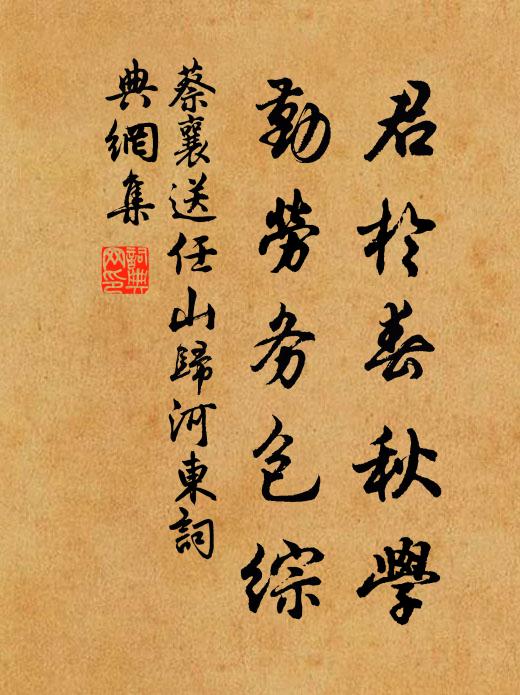 君於春秋學
勤勞务包綜
蔡襄送任山歸河東詞
典網集
詞典
网印